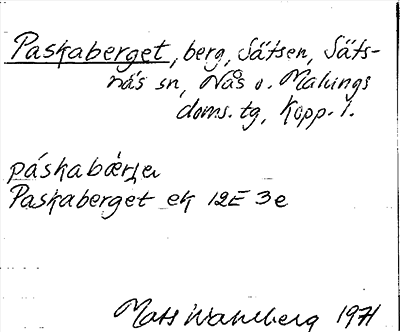 Paskaberget, berg, Sätsen, Säts-
näs sn, Nås o. Malungs
doms. tg, Kopp. l.
páskabærja
Paskaberget ek 12E 3e
Mats Wahlberg 1971